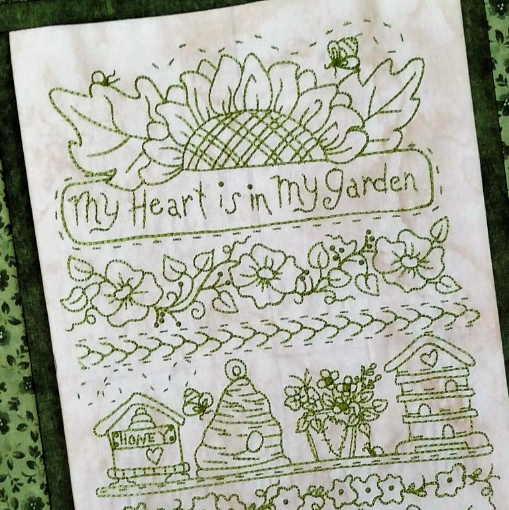 My Heart is in My garden
HONEY